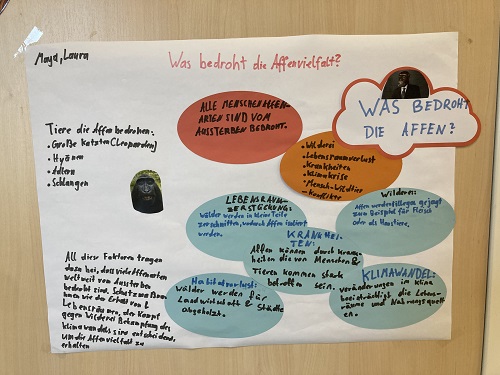 Maya, Laura
Was bedroht die Affenvielfalt?
ALLE MENSCHENAFFEN-
ARTEN SIND VOM
AUSSTERBEN BEDROHT.
WAS BEDROHT
DIE AFFEN?
Tiere die Affen bedrohen:
• Große Katzten (Leoparden)
• Hyänen
• Adlern
• Schlangen
• Wilderei
• Lebensraumverlust
• Krankheiten
• Klimakrise
• Mensch-Wildtier
- Konflikte
LEBENSRAUM-
ZERSTÜCKUNG:
Wälder werden in kleine Teile
zerschnitten, wodurch Affen isoliert
werden.
Wilderer:
Affen werden illegal gejagt
zum Beispiel für Fleisch
oder als Haustiere.
KRANKHEI-
TEN:
Affen können durch krank-
heiten die von Menschen &
Tieren kommen stark
betroffen sein.
Habitatverlust:
Wälder werden für
Landwirtschaft & Städte
abgeholzt.
KLIMAWANDEL:
veränderungen im klima
beeiträchtigt die Lebens-
räume und Nahrungsquell
en.
All diese Faktoren tragen
dazu bei, dass viele Affenarten
weltweit von Aussterben
bedroht sind. Schutzmaßnah
men wie der Erhalt von
Lebensräumen, der Kampf
gegen Wilderei Bekämpfung des
klimawandels sind entscheidend,
um die Affenvielfalt zu
erhalten